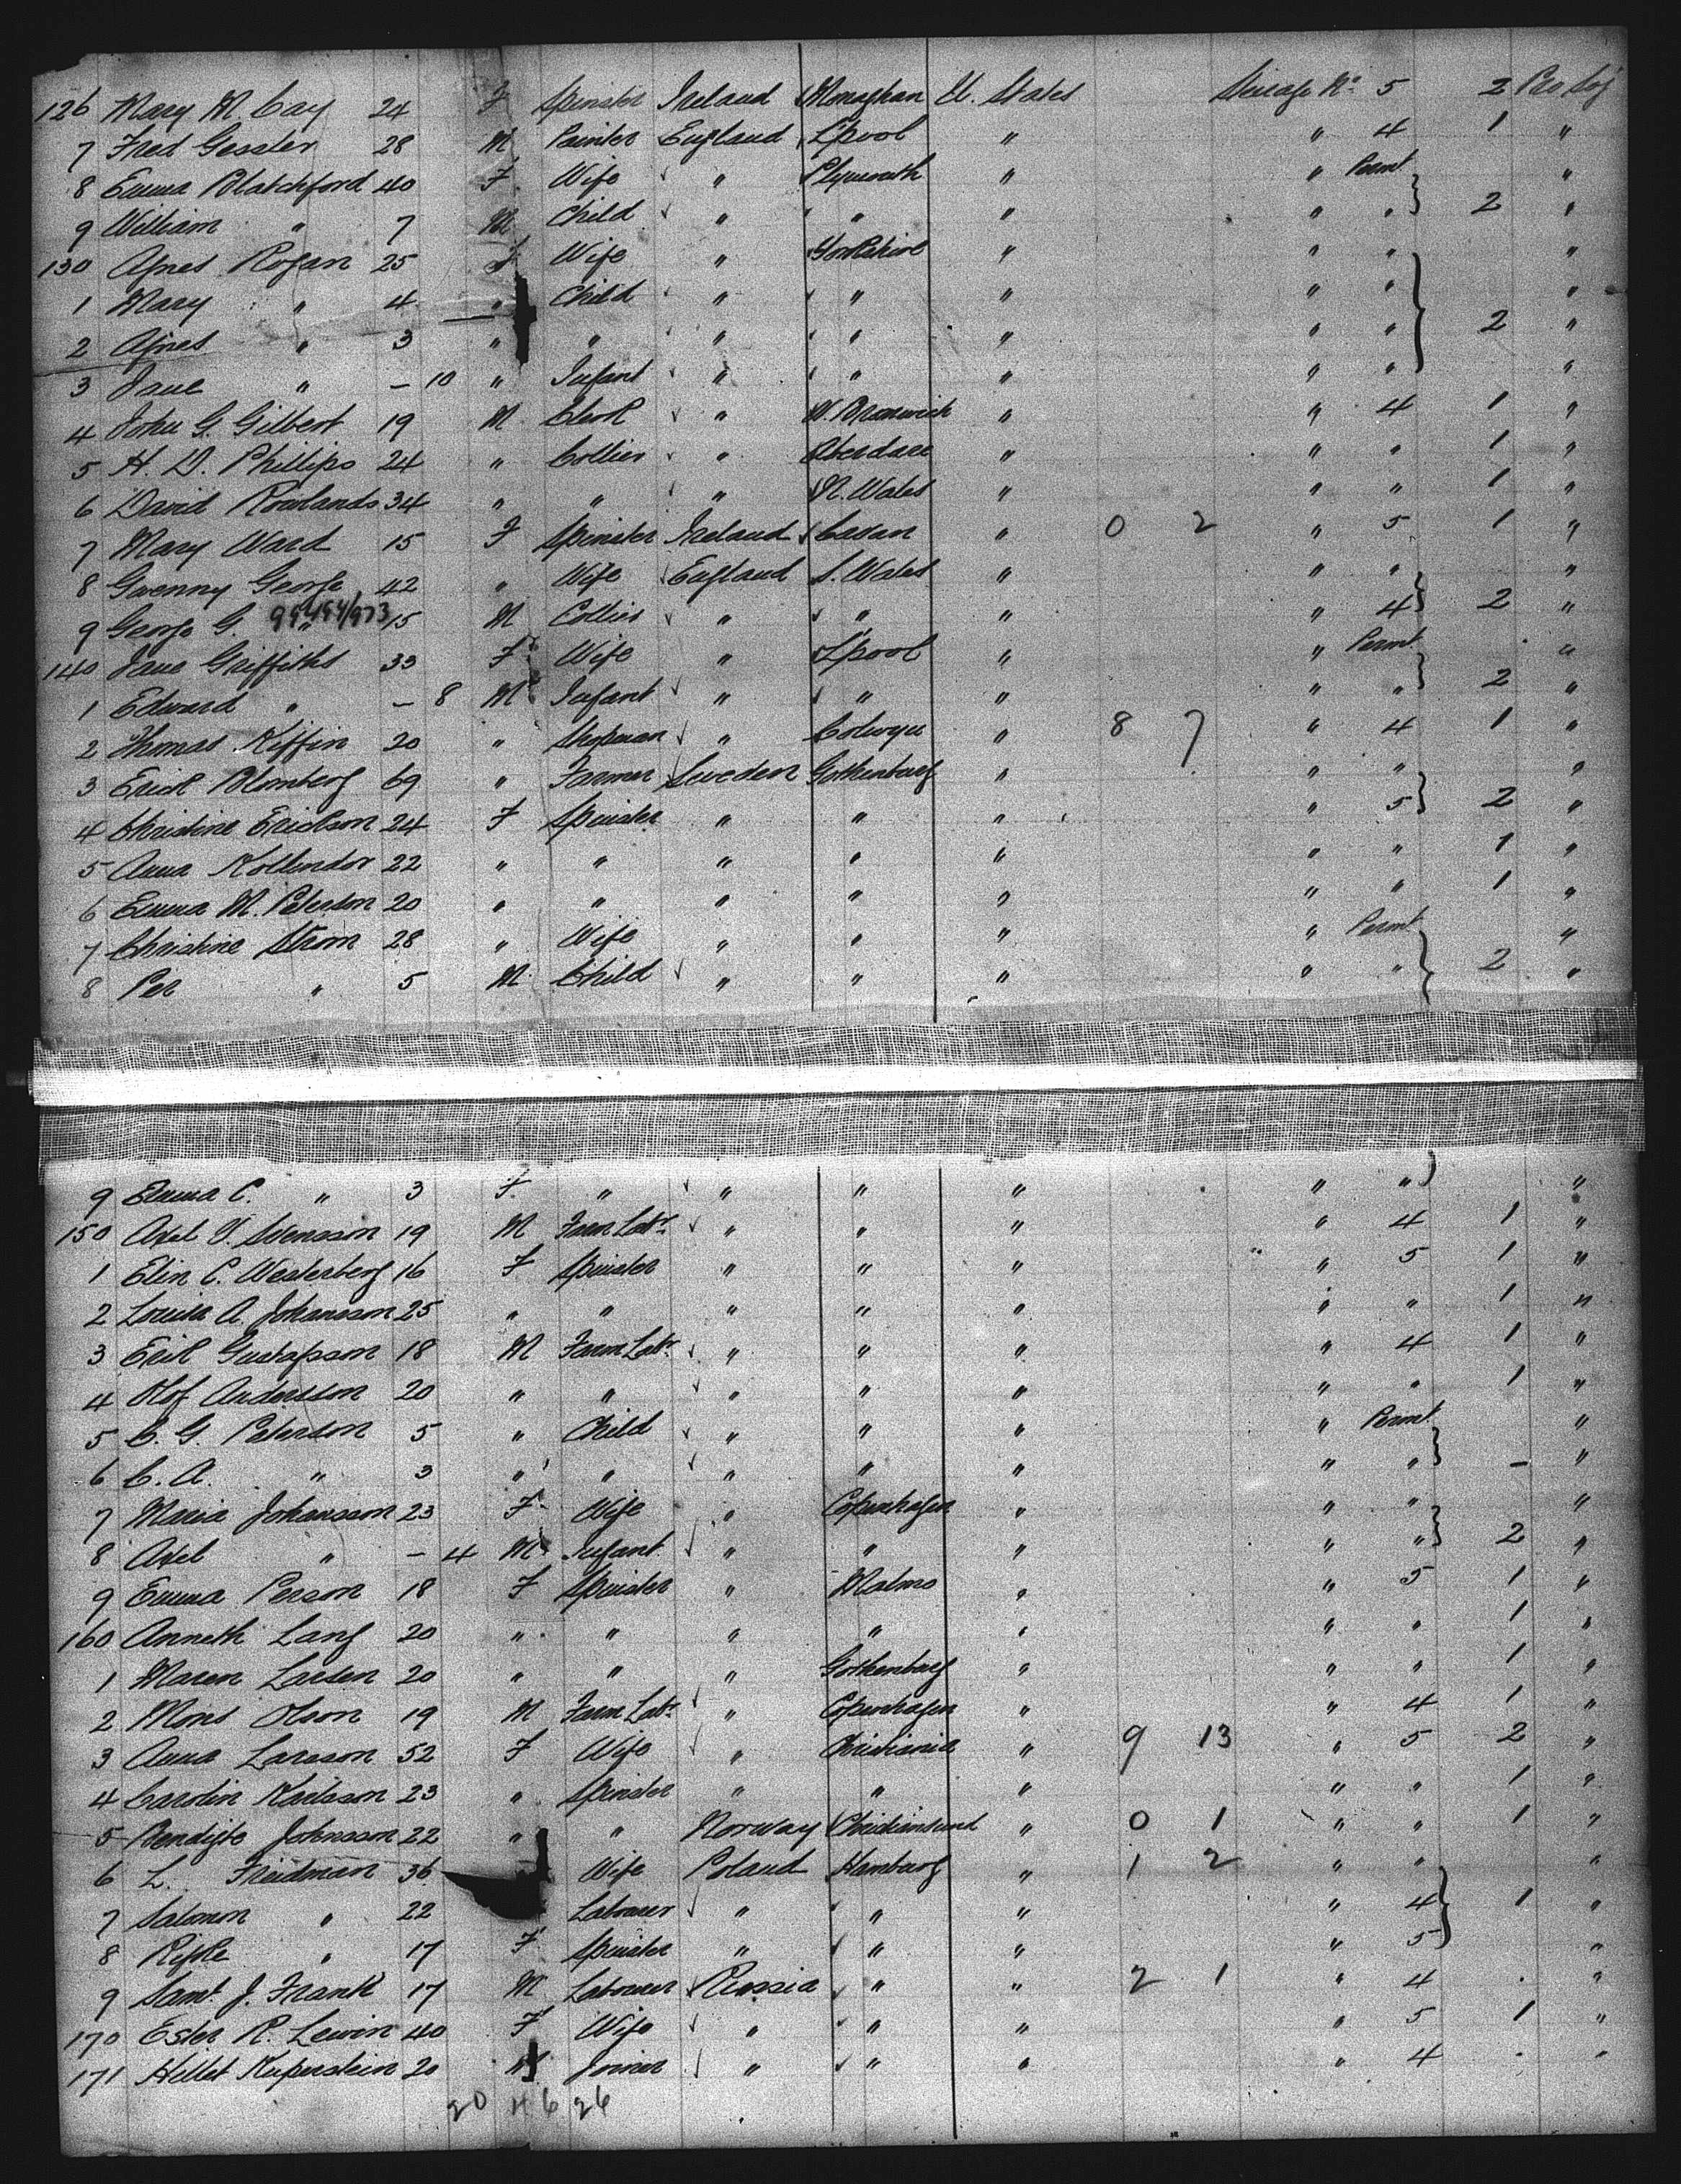 126 Mary M. Cay 24 F Spinster Ireland Monaghan U. States Steerage No 5 2 Pro Soj
7 Fred Gessler 28 M Painter England L'pool " " 4 1 "
8 Emma Blatchford 40 F. Wife " Plymouth " " Permt "
9 William " 7 M Child " " " " " 2 "
130 Agnes Rogan 25 F Wife " Yorkshire " " " "
1 Mary " 4 " Child " " " " " "
2 Agnes " 3 " " " " " " " 2 "
3 Jane " – 10 " Infant " " " " " "
4 John G. Gilbert 19 M Clerk " W. Bromwich " " 4 1 "
5 H. D. Phillips 24 " Collier " Aberdare " " " 1 "
6 David Rowlands 34 " " " N. Wales " " " 1 "
7 Mary Ward 15 F Spinster Ireland Cavan " 0 2 " 5 1 "
8 Gwenny George 42 " Wife England S. Wales " " " "
9 George G. " 15 M Collier " " " " 4 2 "
140 Jane Griffiths 33 F Wife " L'pool " " Permt "
1 Edward " – 8 M Infant " " " " " 2 "
2 Thomas Kiffin 20 " Shopman " Colwyn " 8 7 " 4 1 "
3 Erick Blomberg 69 " Farmer Sweden Gothenburg " " " "
4 Christine Erickson 24 F Spinster " " " " 5 2 "
5 Anna Kollendor 22 " " " " " " " 1 "
6 Emma M. Peterson 20 " " " " " " " 1 "
7 Christine Strom 28 " Wife " " " " Permt "
8 Per " 5 M Child " " " " " 2 "
9 Emma C. " 3 F. " " " " " " "
150 Axel V. Svensson 19 M Farm Labr " " " " 4 1 "
1 Elin C. Westerberg 16 F Spinster " " " " 5 1 "
2 Louisa A. Johansson 25 " " " " " " " 1 "
3 Erik Gustafsson 18 M Farm Labr " " " " 4 1 "
4 Olof Andersson 20 " " " " " " " 1 "
5 C. G. Peterson 5 " Child " " " " Permt "
6 C. A. " 3 " " " " " " " – "
7 Maria Johansson 23 F Wife " Copenhagen " " " "
8 Axel " – 4 M Infant " " " " " 2 "
9 Emma Person 18 F Spinster " Malmo " " 5 1 "
160 Anneth Lang 20 " " " " " " " 1 "
1 Maren Larsen 20 " " " Gothenburg " " " 1 "
2 Mons Olson 19 M Farm Labr " Copenhagen " " 4 1 "
3 Anna Larsson 52 F Wife " Christiania " 9 13 " 5 2 "
4 Carolin Karlsson 23 " Spinster " " " " " 1 "
5 Bendigte Johnsson 22 " " Norway Christiansund " 0 1 " " 1 "
6 L. Freidman 36 Wife Poland Hamburg " 1 2 " " "
7 Salomon " 22 Labourer " " " " 4 1 "
8 Rifke " 17 F Spinster " " " " 5 "
9 Saml. J. Frank 17 M Labourer Russia " " 2 1 " 4 "
170 Ester R. Lewin 40 F Wife " " " " 5 1 "
171 Hillel Kuperstein 20 M Joiner " " " " 4 "
20 46 26